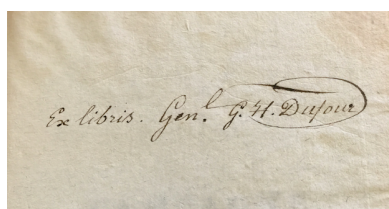 Ex libris. Gen.l G. H. Dufour